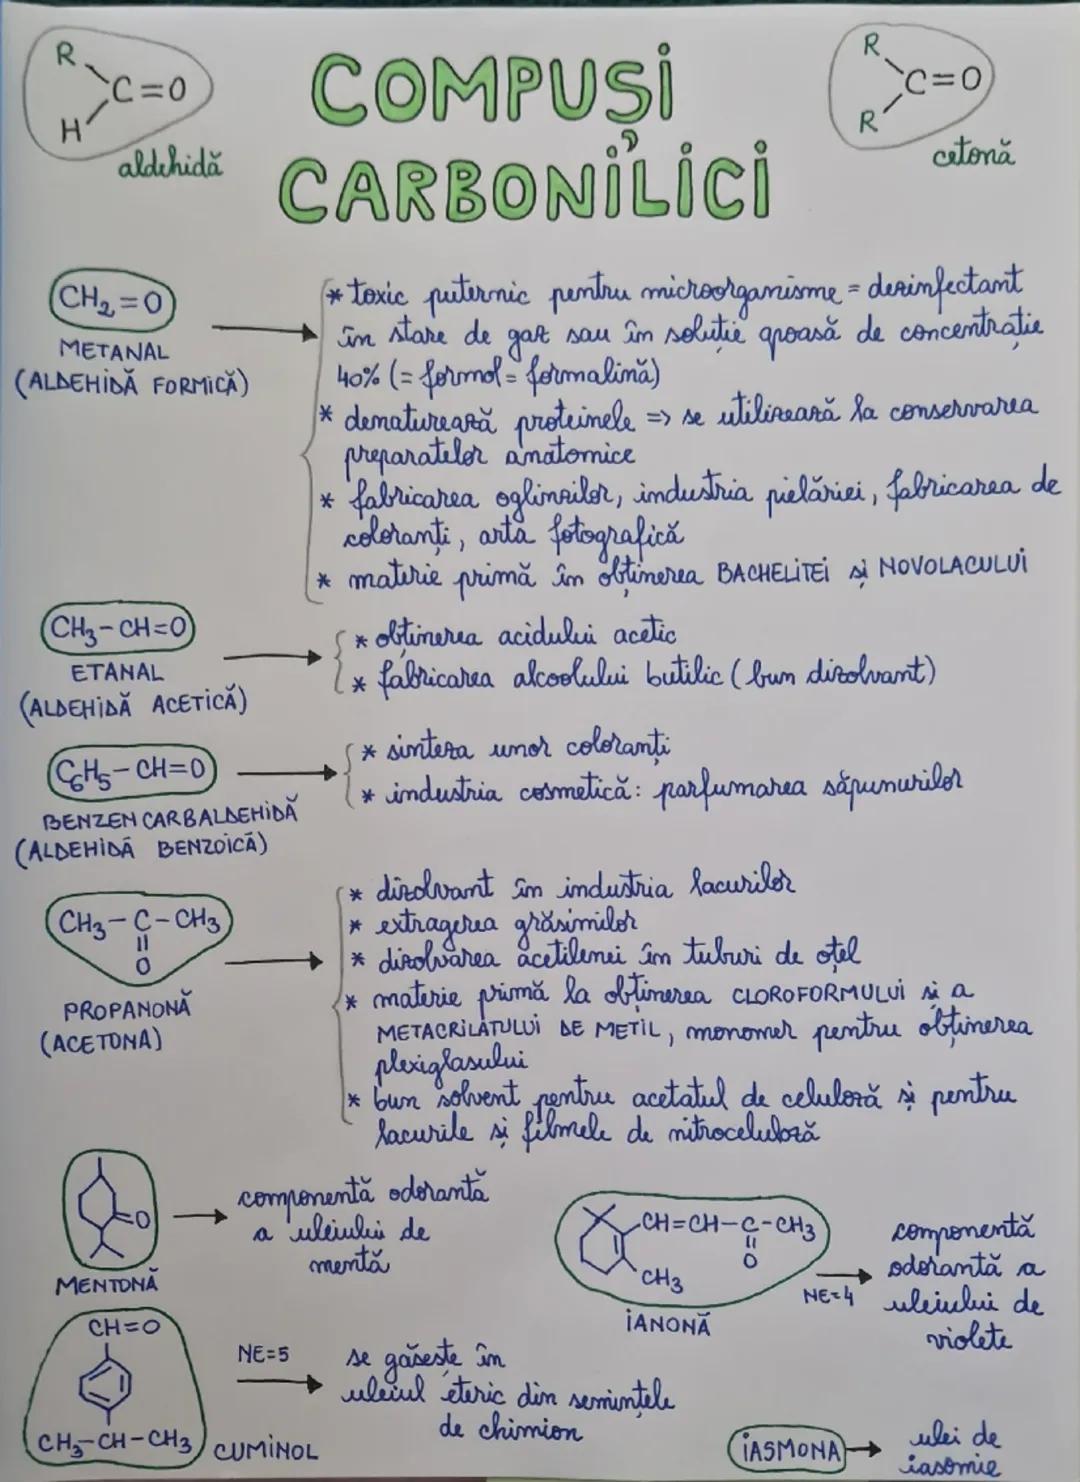 R
C=O
H
aldehidă
COMPUȘI
CARBONILICI
R
C=O
R
cetonă
CH₂=O
METANAL
(ALDEHIDĂ FORMICĂ)
* toxic puternic pentru microorganisme = dezinfectant
în stare de gaz sau în soluție apoasă de concentrație
40% (= formol = formalină)
* denaturează proteinele => se utilizează la conservarea
preparatelor anatomice
* fabricarea oglinzilor, industria pielăriei, fabricarea de
coloranți, arta fotografică
* materie primă în obținerea BACHELITEI și NOVOLACULUI
CH₃-CH=O
ETANAL
(ALDEHIDĂ ACETICĂ)
* obținerea acidului acetic
* fabricarea alcoolului butilic (bun dizolvant)
C₆H₅-CH=O
BENZENCARBALDEHIDĂ
(ALDEHIDĂ BENZOICĂ)
* sinteza unor coloranți
* industria cosmetică: parfumarea săpunurilor
CH₃-C-CH₃
O
PROPANONĂ
(ACETONA)
* dizolvant în industria lacurilor
* extragerea grăsimilor
* dizolvarea acetilenei în tuburi de oțel
* materie primă la obținerea CLOROFORMULUI și a
METACRILATULUI DE METIL, monomer pentru obținerea
plexiglasului
* bun solvent pentru acetatul de celuloză și pentru
lacurile și filmele de nitroceluloză
O
MENTONĂ
componentă odorantă
a uleiului de
mentă
CH=CH-C-CH₃
O
CH₃
IANONĂ
NE=4
componentă
odorantă a
uleiului de
violete
CH=O
CH₃-CH-CH₃
CUMINOL
NE=5
se găsește în
uleiul eteric din semințele
de chimion
IASMONA
ulei de
iasomie